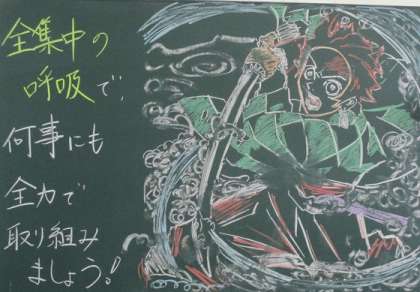 全集中の
呼吸で、
何事にも
全力で
取り組み
ましょう!